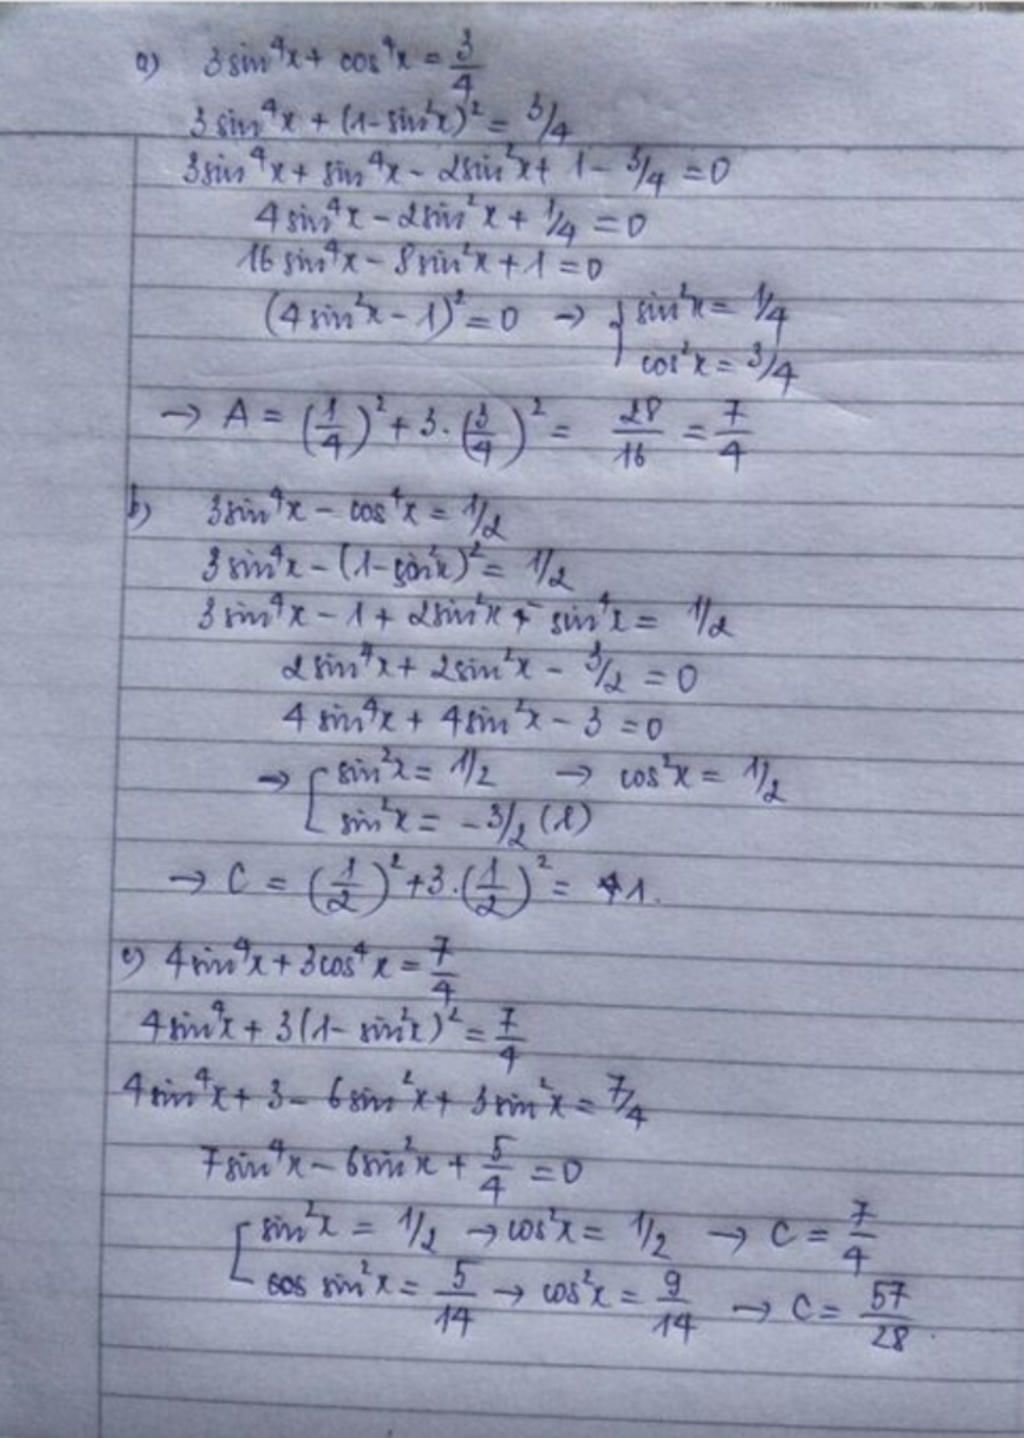 a) 3sin⁴x + cos⁴x = 3/4
3sin⁴x + (1-sin²x)² = 3/4
3sin⁴x + sin⁴x - 2sin²x + 1 - 3/4 = 0
4sin⁴x - 2sin²x + 1/4 = 0
16sin⁴x - 8sin²x + 1 = 0
(4sin²x - 1)² = 0 → { sin²x = 1/4
cos²x = 3/4
→ A = (1/4)² + 3.(3/4)² = 28/16 = 7/4
b) 3sin⁴x - cos⁴x = 1/2
3sin⁴x - (1-sin²x)² = 1/2
3sin⁴x - 1 + 2sin²x - sin⁴x = 1/2
2sin⁴x + 2sin²x - 3/2 = 0
4sin⁴x + 4sin²x - 3 = 0
→ [ sin²x = 1/2 → cos²x = 1/2
sin²x = -3/2 (l)
→ C = (1/2)² + 3.(1/2)² = 1.
c) 4sin⁴x + 3cos⁴x = 7/4
4sin⁴x + 3(1 - sin²x)² = 7/4
4sin⁴x + 3 - 6sin²x + 3sin²x = 7/4
7sin⁴x - 6sin²x + 5/4 = 0
[ sin²x = 1/2 → cos²x = 1/2 → C = 7/4
cos sin²x = 5/14 → cos²x = 9/14 → C = 57/28.